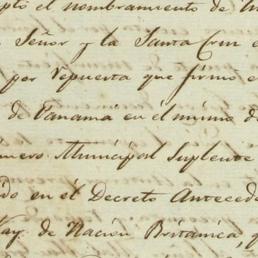 el nombramiento de
Señor y la Santa Cruz
por repuesta que firmo e
de Panamá en el mismo d
mero Municipal Suplente
do en el Decreto Anteced
Kay de Nacion Britanica q